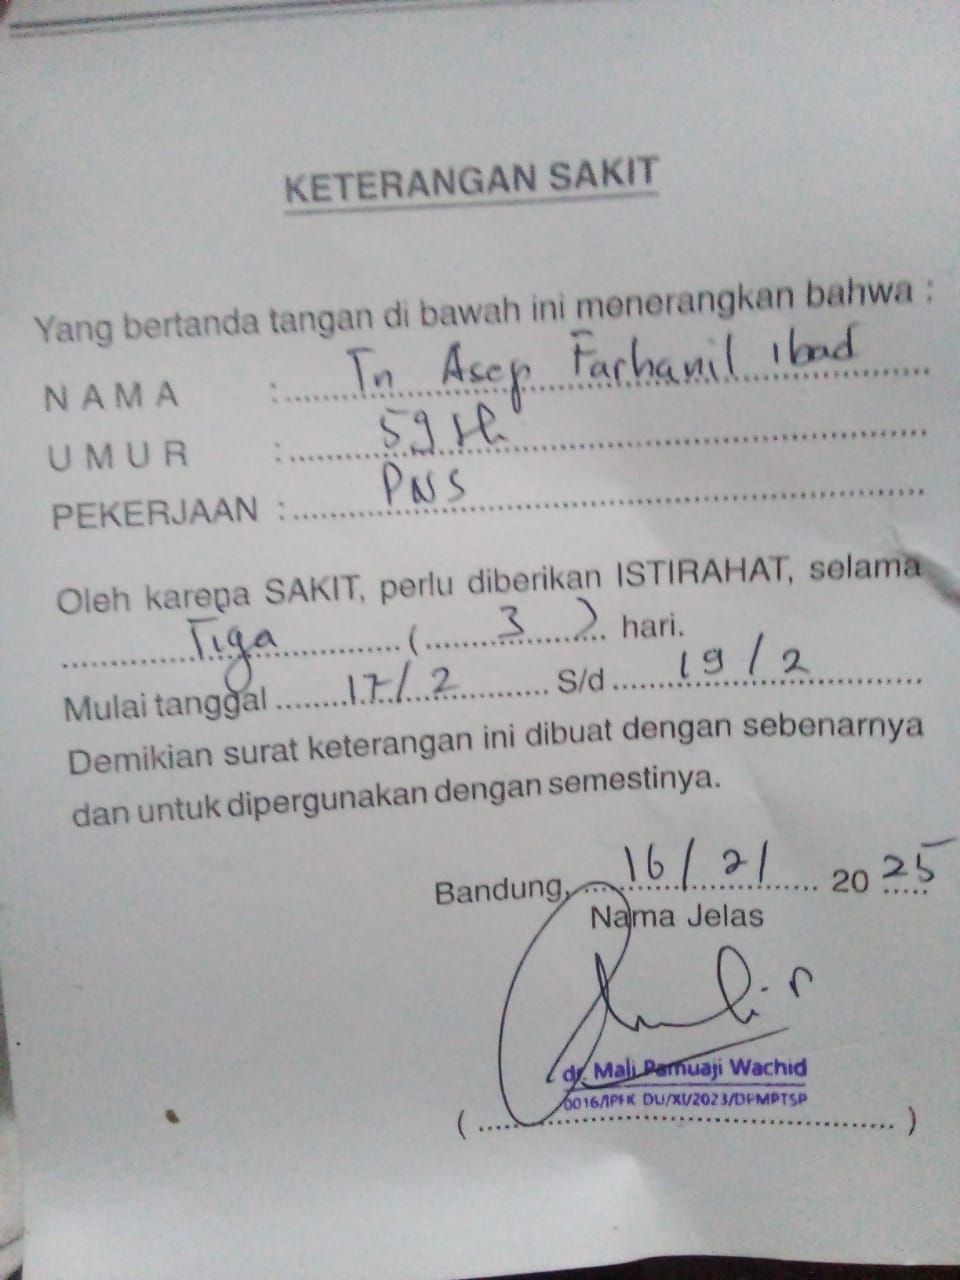 KETERANGAN SAKIT
Yang bertanda tangan di bawah ini menerangkan bahwa :
NAMA : Tn Asep Farhanil Ibad
UMUR : 59 th
PEKERJAAN : PNS
Oleh karena SAKIT, perlu diberikan ISTIRAHAT, selama
Tiga ( 3 ) hari.
Mulai tanggal 17/2 S/d 19/2
Demikian surat keterangan ini dibuat dengan sebenarnya
dan untuk dipergunakan dengan semestinya.
Bandung, 16/2/ 2025
Nama Jelas
dr. Mali Pamuaji Wachid
0016/IPFK DU/XI/2023/DPMPTSP
( )